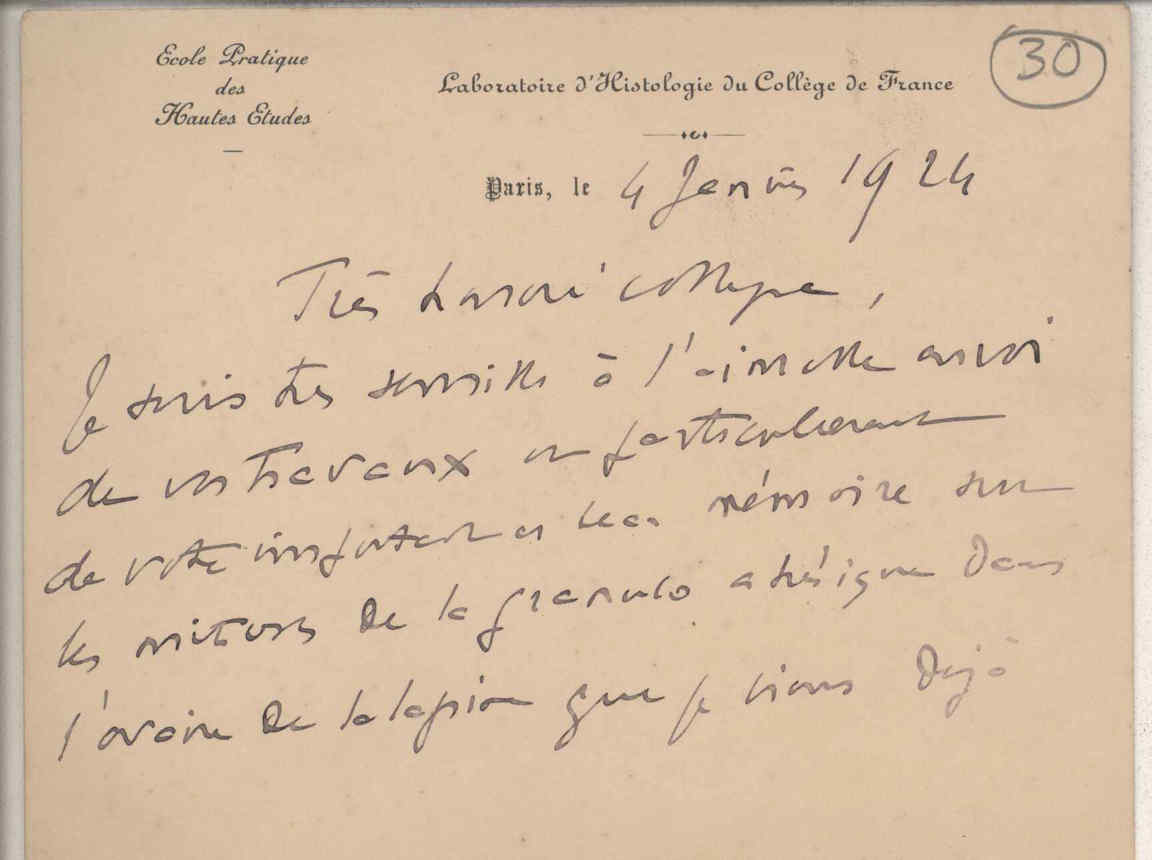 Ecole Pratique
des
Hautes Etudes
Laboratoire d'Histologie du Collège de France
30
Paris, le 4 Janvier 1924
Très honoré collègue,
Je suis très sensible à l'aimable envoi
de vos travaux et particulièrement
de votre important et beau mémoire sur
les mitoses de la granulosa atrésique dans
l'ovaire de la lapine que je viens déjà